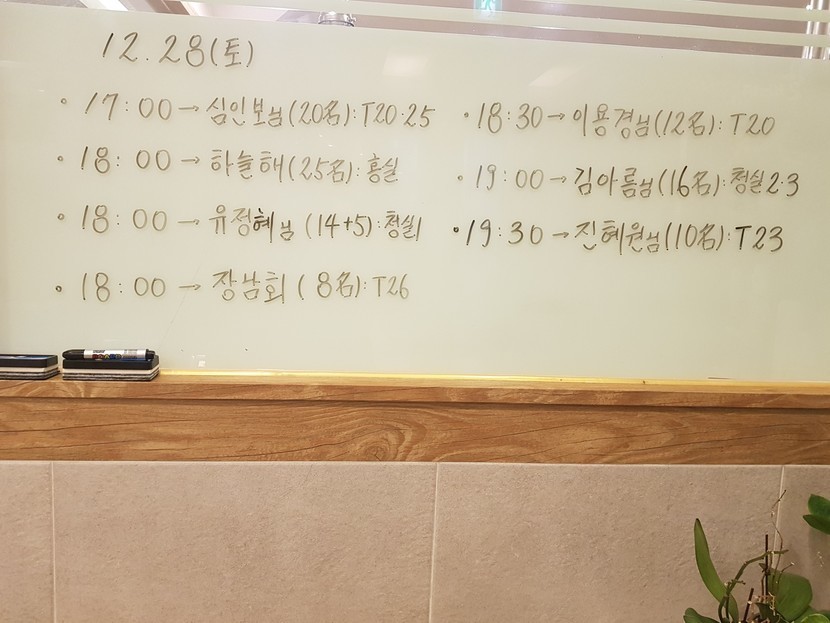 12.28(토)
• 17:00 → 심인보님(20名): T20·25
• 18:00 → 하늘해(25名): 홍실
• 18:00 → 유정혜님 (14+5): 청실1
• 18:00 → 장남회 (8名): T26
• 18:30 → 이용경님(12名): T20
• 19:00 → 김아름님(16名): 청실2·3
• 19:30 → 진혜원님(10名): T23